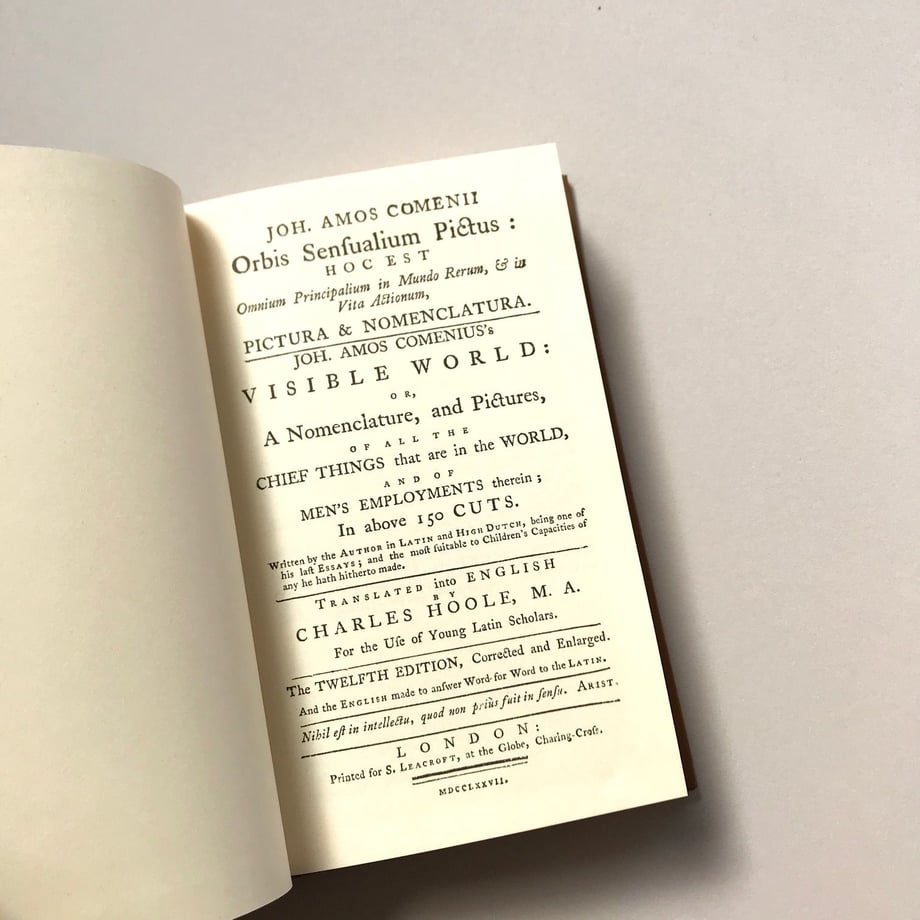 JOH. AMOS COMENII
Orbis Senſualium Pictus :
HOC EST
Omnium Principalium in Mundo Rerum, & in
Vita Actionum,
PICTURA & NOMENCLATURA.
JOH. AMOS COMENIUS's
VISIBLE WORLD:
OR,
A Nomenclature, and Pictures,
OF ALL THE
CHIEF THINGS that are in the WORLD,
AND OF
MEN'S EMPLOYMENTS therein ;
In above 150 CUTS.
Written by the AUTHOR in LATIN and HIGH DUTCH, being one of
his laſt ESSAYS ; and the moſt ſuitable to Children's Capacities of
any he hath hitherto made.
TRANSLATED into ENGLISH
BY
CHARLES HOOLE, M. A.
For the Uſe of Young Latin Scholars.
The TWELFTH EDITION, Corrected and Enlarged.
And the ENGLISH made to anſwer Word for Word to the LATIN.
Nihil eſt in intellectu, quod non priùs fuit in ſenſu. ARIST.
LONDON:
Printed for S. LEACROFT, at the Globe, Charing-Croſs.
MDCCLXXVII.